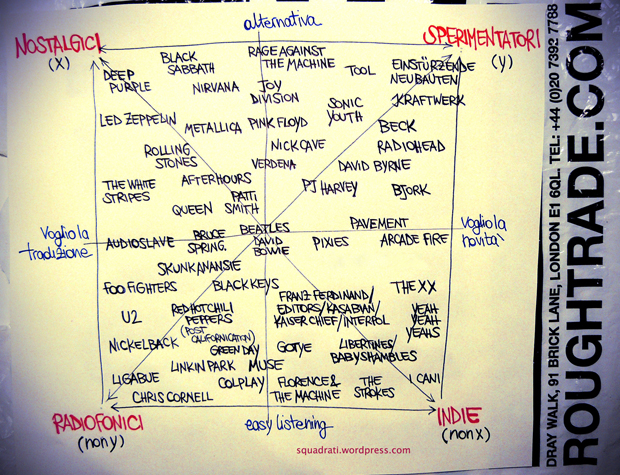 alternativa
NOSTALGICI
(X)
SPERIMENTATORI
(y)
BLACK
SABBATH
RAGE AGAINST
THE MACHINE
DEEP
PURPLE
NIRVANA
JOY
DIVISION
TOOL
EINSTÜRZENDE
NEUBAUTEN
SONIC
YOUTH
KRAFTWERK
LED ZEPPELIN
METALLICA
PINK FLOYD
BECK
NICK CAVE
RADIOHEAD
ROLLING
STONES
VERDENA
DAVID BYRNE
THE WHITE
STRIPES
AFTERHOURS
PATTI
SMITH
PJ HARVEY
BJORK
QUEEN
Voglio la
tradizione
AUDIOSLAVE
BRUCE
SPRING.
BEATLES
DAVID
BOWIE
PIXIES
PAVEMENT
ARCADE FIRE
Voglio la
novità
SKUNKANANSIE
FOO FIGHTERS
BLACK KEYS
FRANZ FERDINAND/
EDITORS/KASABIAN/
KAISER CHIEF/INTERPOL
THE XX
U2
RED HOT CHILI
PEPPERS
(POST
CALIFORNICATION)
YEAH
YEAH
YEAHS
NICKELBACK
GREEN DAY
GOTYE
LIBERTINES/
BABYSHAMBLES
LINKIN PARK
MUSE
LIGABUE
COLPLAY
FLORENCE &
THE MACHINE
THE
STROKES
I CANI
CHRIS CORNELL
RADIOFONICI
(non y)
easy listening
INDIE
(non x)
squadrati.wordpress.com
DRAY WALK, 91 BRICK LANE, LONDON E1 6QL. TEL: +44 (0)20 7392 7788
ROUGHTRADE.COM